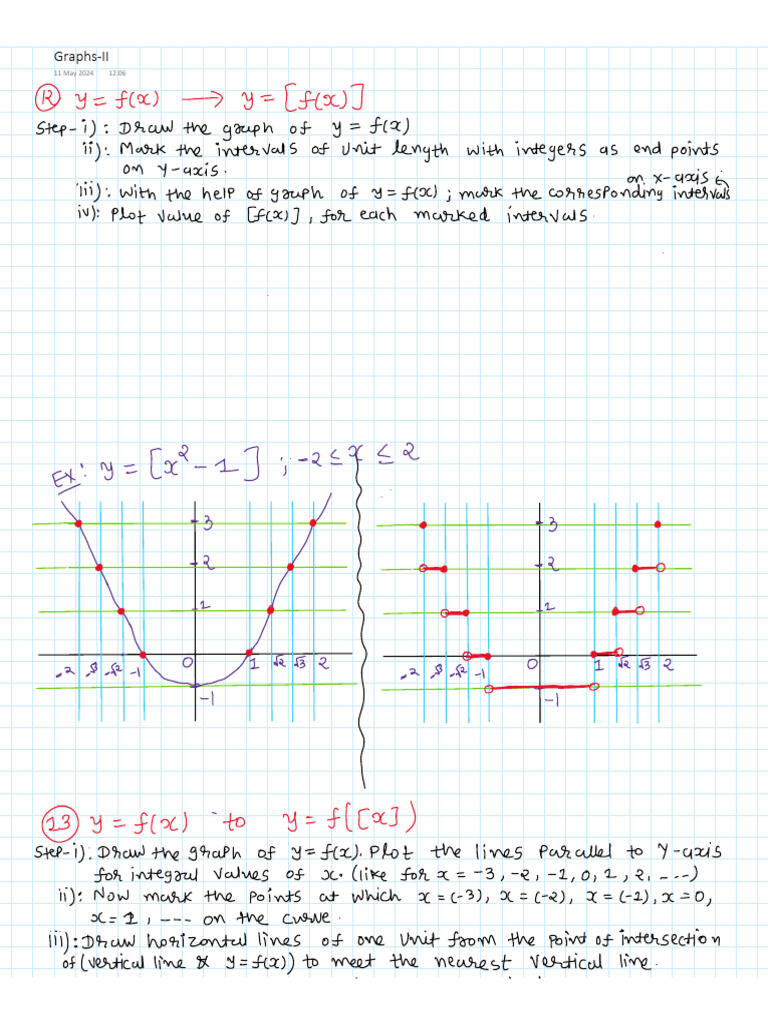 Graphs-II
11 May 2024 12:06
12 y = f(x) → y = [f(x)]
Step-i): Draw the graph of y = f(x)
ii): Mark the intervals of unit length with integers as end points
on y-axis.
on x-axis
iii): With the help of graph of y = f(x); mark the corresponding intervals
iv): Plot value of [f(x)], for each marked intervals.
Ex: y = [x² - 1] ; -2 ≤ x ≤ 2
3
2
1
-2 -√3 -√2 -1 0 1 √2 √3 2
-1
3
2
1
-2 -√3 -√2 -1 0 1 √2 √3 2
-1
13 y = f(x) to y = f([x])
Step-i). Draw the graph of y = f(x). Plot the lines parallel to y-axis
for integral values of x. (like for x = -3, -2, -1, 0, 1, 2, ---)
ii): Now mark the points at which x = (-3), x = (-2), x = (-1), x = 0,
x = 1, --- on the curve.
iii): Draw horizontal lines of one unit from the point of intersection
of (vertical line & y = f(x)) to meet the nearest vertical line.